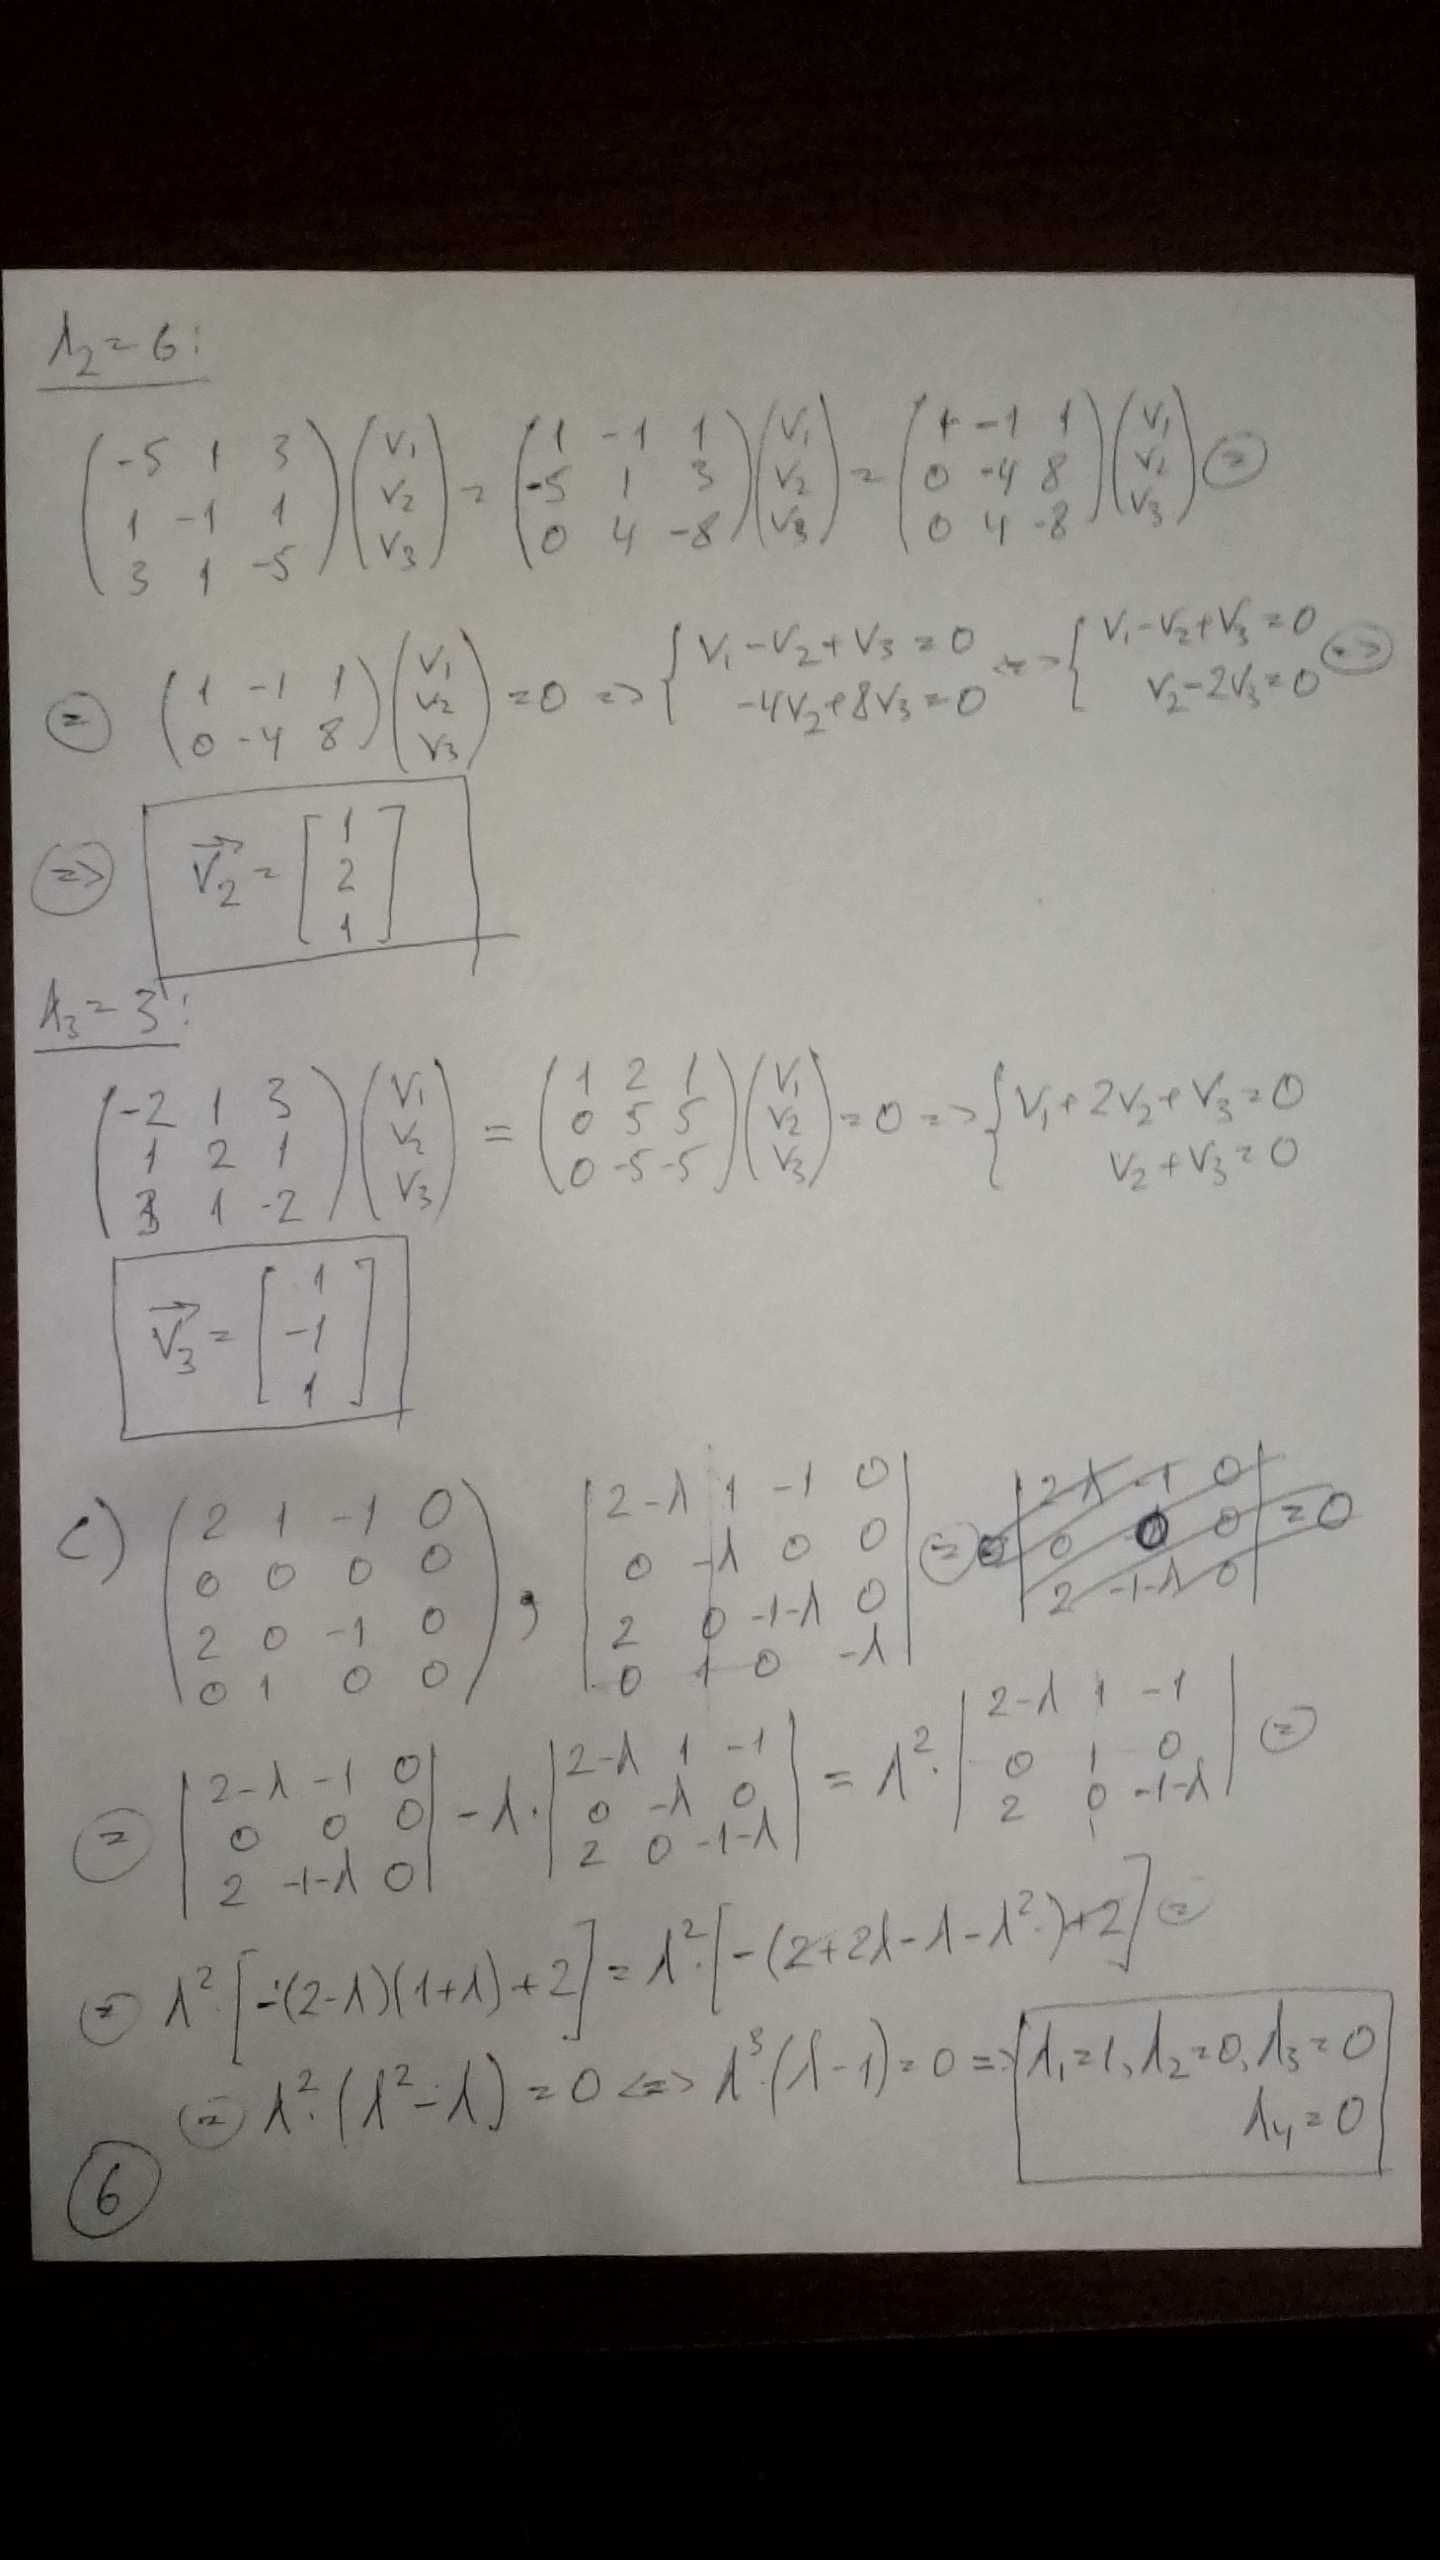 λ₂ = 6:
(-5 1 3; 1 -1 1; 3 1 -5)(v₁; v₂; v₃) = (1 -1 1; -5 1 3; 0 4 -8)(v₁; v₂; v₃) = (1 -1 1; 0 -4 8; 0 4 -8)(v₁; v₂; v₃) (=)
(=) (1 -1 1; 0 -4 8)(v₁; v₂; v₃) = 0 => { v₁ - v₂ + v₃ = 0; -4v₂ + 8v₃ = 0 <=> { v₁ - v₂ + v₃ = 0; v₂ - 2v₃ = 0 (=>)
(=>) v₂⃗ = [1; 2; 1]
λ₃ = 3:
(-2 1 3; 1 2 1; 3 1 -2)(v₁; v₂; v₃) = (1 2 1; 0 5 5; 0 -5 -5)(v₁; v₂; v₃) = 0 => { v₁ + 2v₂ + v₃ = 0; v₂ + v₃ = 0
v₃⃗ = [1; -1; 1]
c) (2 1 -1 0; 0 0 0 0; 2 0 -1 0; 0 1 0 0), |2-λ 1 -1 0; 0 -λ 0 0; 2 0 -1-λ 0; 0 1 0 -λ| (=) |2-λ -1 0; 0 0 0; 2 -1-λ 0| = 0
(=) |2-λ -1 0; 0 0 0; 2 -1-λ 0| - λ·|2-λ 1 -1; 0 -λ 0; 2 0 -1-λ| = λ²·|2-λ 1 -1; 0 1 0; 2 0 -1-λ| (=)
(=) λ²·[-(2-λ)(1+λ)+2] = λ²·[-(2+2λ-λ-λ²)+2] (=)
(=) λ²·(λ²-λ) = 0 <=> λ³·(λ-1) = 0 => λ₁=1, λ₂=0, λ₃=0
λ₄=0
6